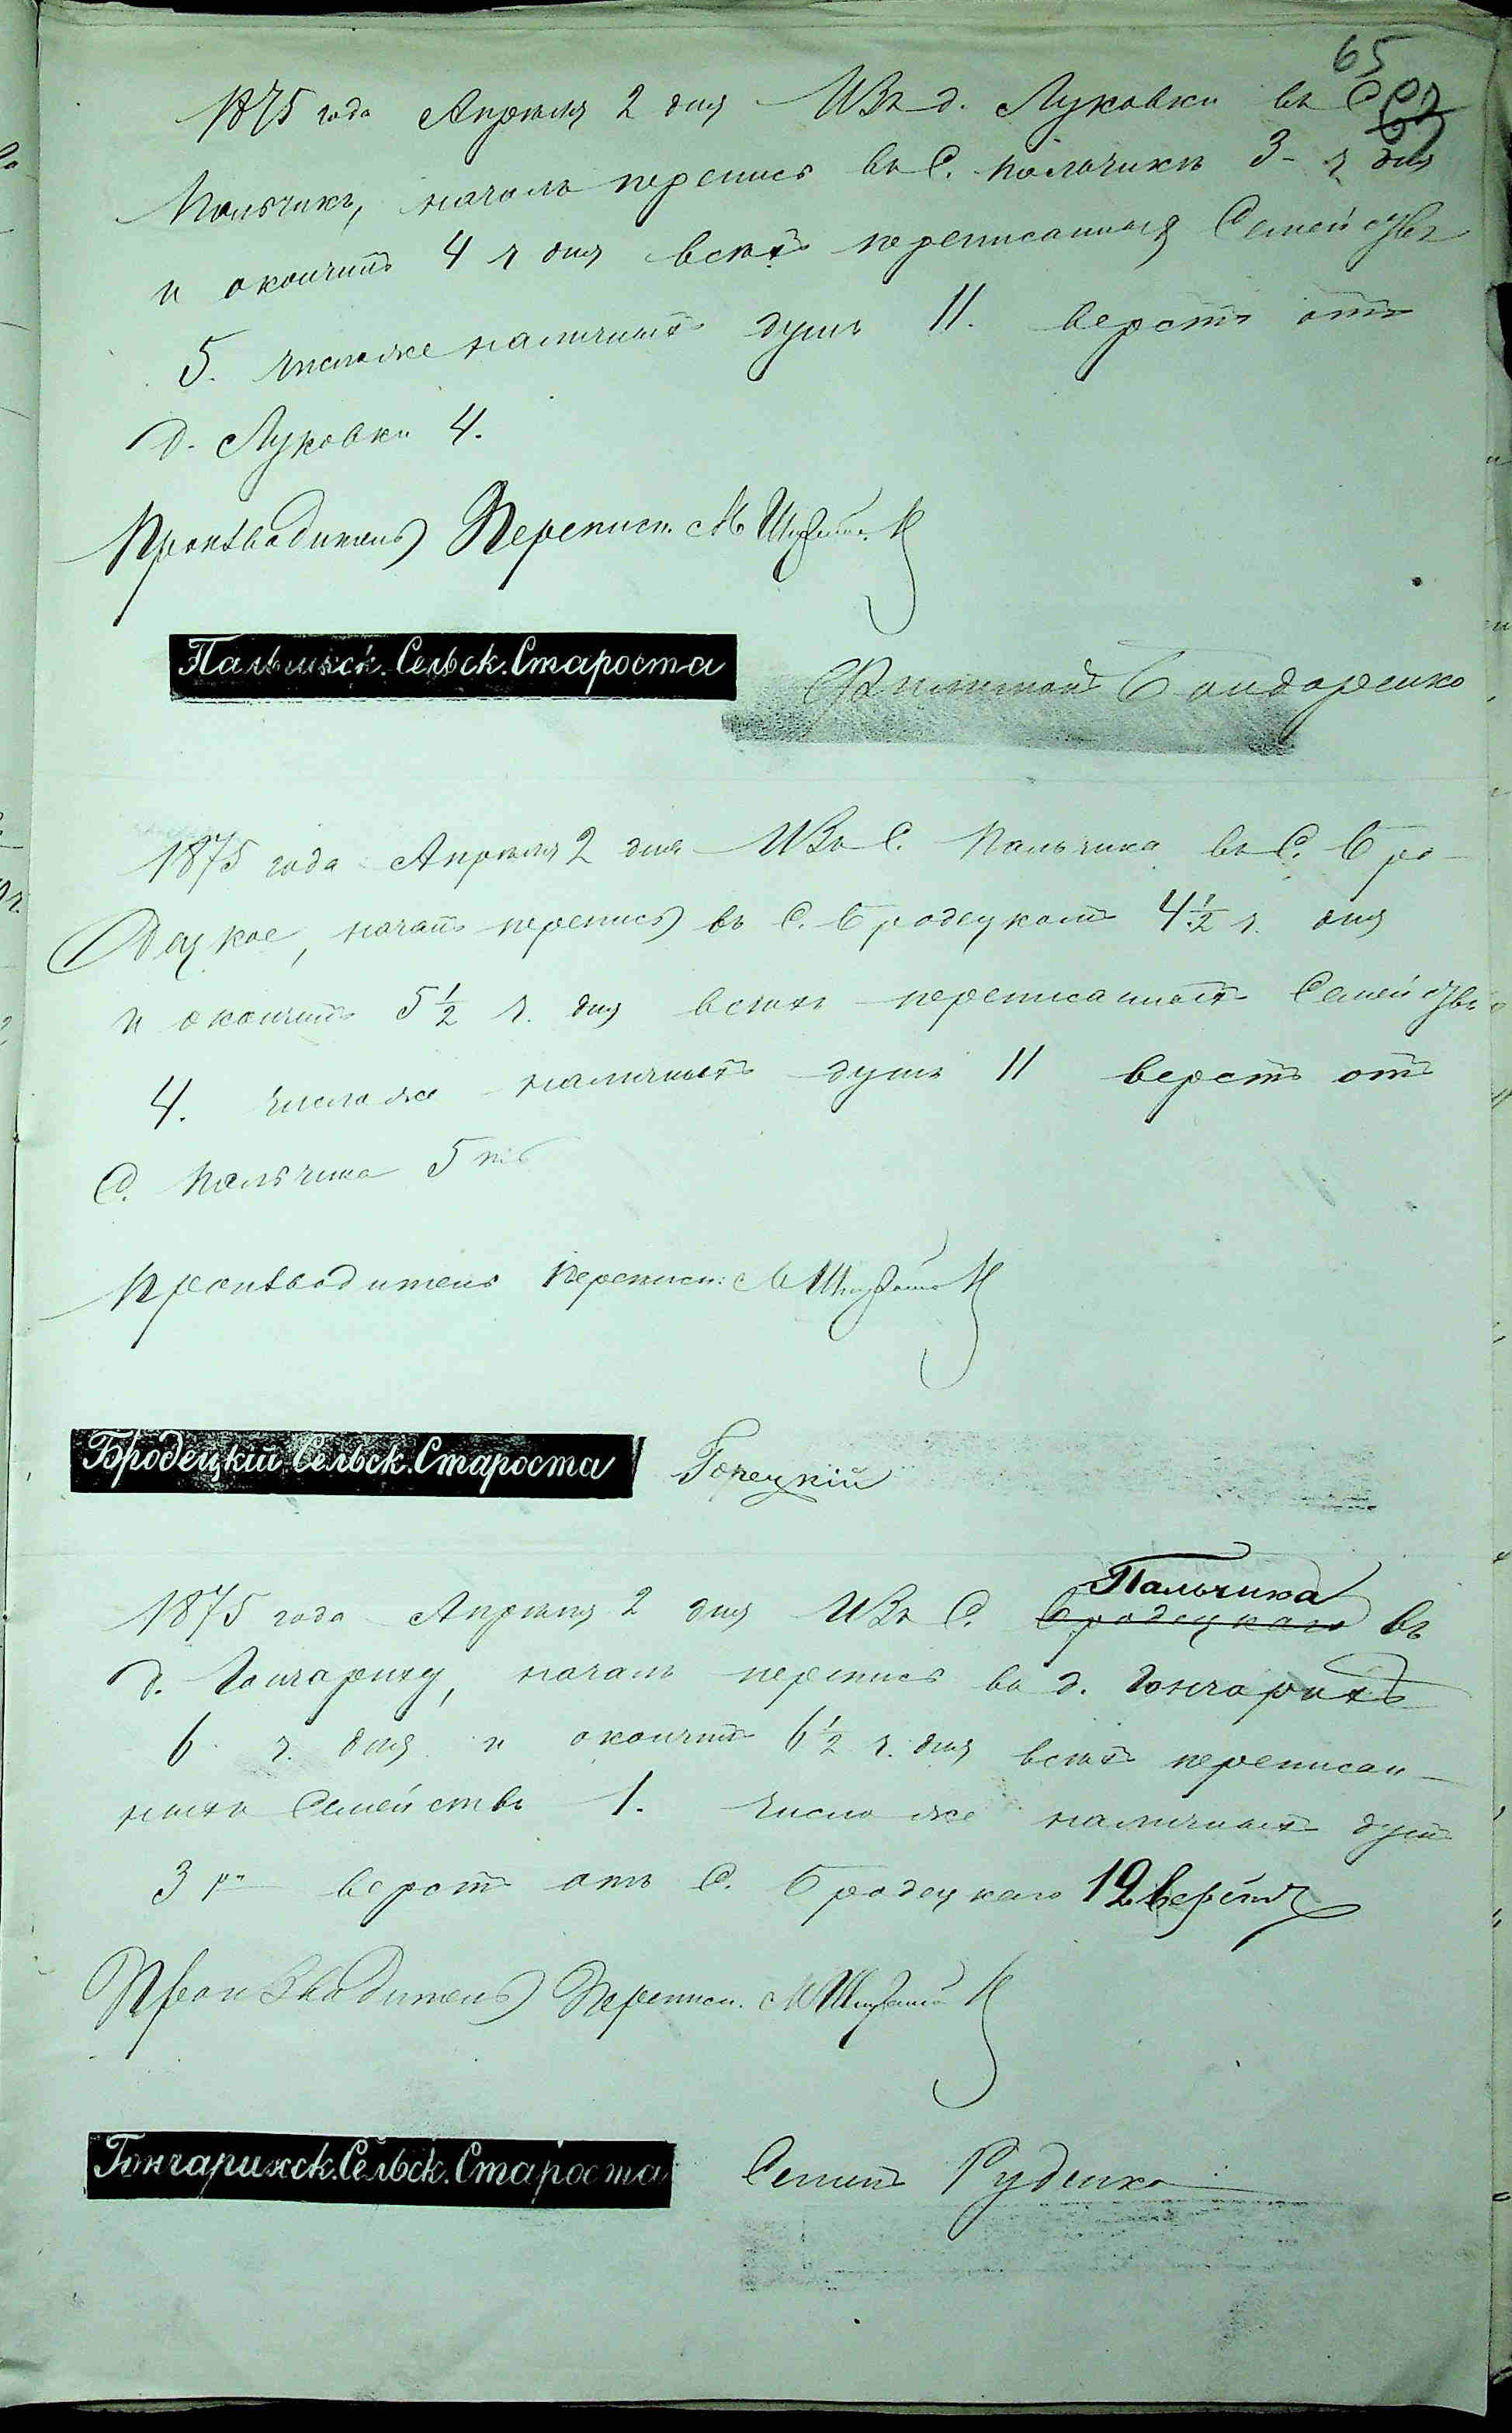 65
1875 года Апрѣля 2 дня Изъ д. Луковки въ С.
Пальчикъ, началъ перепись въ С. Пальчикѣ 3 - ч дня
и окончилъ 4 ч дня всѣхъ переписанныхъ Семействъ
5. число же наличныхъ душъ 11. верстъ отъ
д. Луковки 4.
Производитель Переписи М
Пальчикск. Сельск. Староста Филимонъ Бондаренко
1875 года Апрѣля 2 дня Изъ С. Пальчика въ С. Бро-
децкое, началъ перепись въ С. Бродецкомъ 4 1/2 ч. дня
и окончилъ 5 1/2 ч. дня всѣхъ переписанныхъ Семействъ
4. число же наличныхъ душъ 11 верстъ отъ
С. Пальчика 5
Производитель Переписи: М
Бродецкій Сельск. Староста Горецкій
Пальчика
1875 года Апрѣля 2 дня Изъ С. Бродецкаго въ
д. Гончариху, началъ перепись въ д. Гончарихѣ
6 ч. дня и окончилъ 6 1/2 ч. дня всѣхъ переписан-
ныхъ Семействъ 1. число же наличныхъ душъ
3 верстъ отъ С. Бродецкаго 12 верстъ
Производитель Переписи. М
Гончарихск. Сельск. Староста Семенъ Руденко